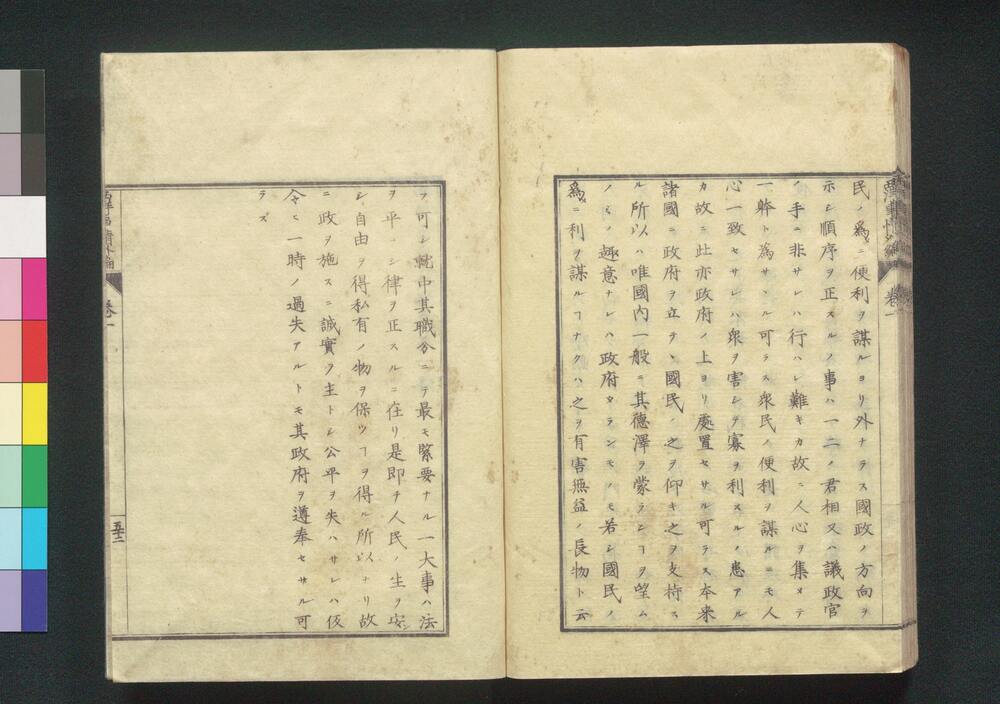 西洋事情外編 卷一
民ノ爲ニ便利ヲ謀ルヨリ外ナラス國政ノ方向ヲ
示シ順序ヲ正スルノ事ハ一二ノ君相又ハ議政官
ノ手ニ非サレハ行ハレ難キカ故ニ人心ヲ集メテ
一躰ト為サヽル可ラス衆民ノ便利ヲ謀ルニモ人
心一致セサレハ衆ヲ害シテ寡ヲ利スルノ患アル
カ故ニ此亦政府ノ上ヨリ處置セサル可ラス本来
諸國ニ政府ヲ立テヽ國民ノ之ヲ仰キ之ヲ支持ス
ル所以ハ唯國内一般ニ其德澤ヲ蒙ランヿヲ望ム
ノミノ趣意ナレハ政府タランモノモ若シ國民ノ
爲ニ利ヲ謀ルヿナクハ之ヲ有害無益ノ長物ト云
フ可シ就中其職分ニテ最モ緊要ナル一大事ハ法
ヲ平ニシ律ヲ正スルニ在リ是即チ人民ノ生ヲ安シ
シ自由ヲ得私有ノ物ヲ保ツヿヲ得ル所以ナリ故
ニ政ヲ施スニ誠實ヲ主トシ公平ヲ失ハサレハ仮
令ヒ一時ノ過失アルトモ其政府ヲ遵奉セサル可
ラズ
西洋事情外編 卷一 五十二